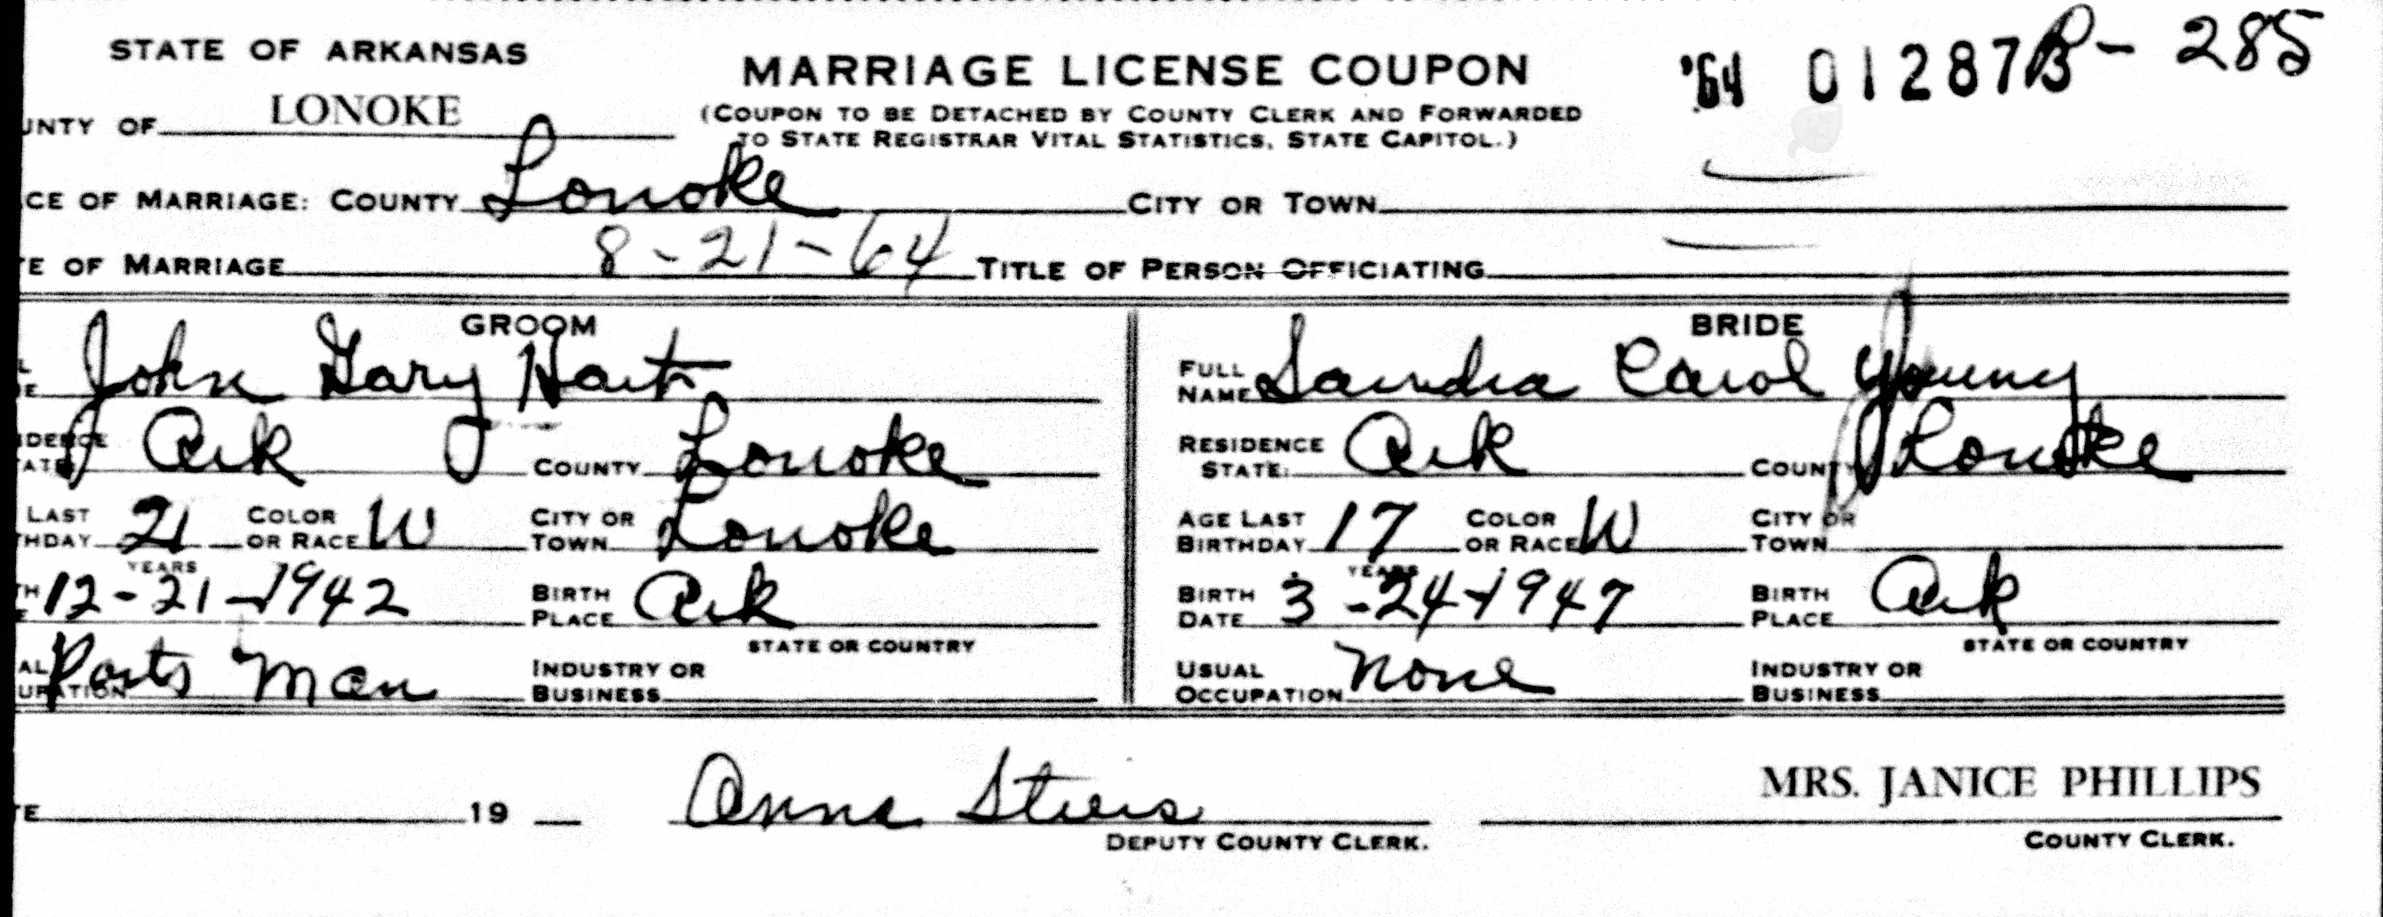 STATE OF ARKANSAS
MARRIAGE LICENSE COUPON
'64 01287 B- 285
UNTY OF LONOKE
(COUPON TO BE DETACHED BY COUNTY CLERK AND FORWARDED
TO STATE REGISTRAR VITAL STATISTICS, STATE CAPITOL.)
CE OF MARRIAGE: COUNTY Lonoke CITY OR TOWN
E OF MARRIAGE 8-21-64 TITLE OF PERSON OFFICIATING
GROOM
L
E John Gary
IDENCE
ATE Ark COUNTY Lonoke
LAST
HDAY 21 YEARS COLOR OR RACE W CITY OR TOWN Lonoke
H
E 12-21-1942 BIRTH PLACE Ark
STATE OR COUNTRY
AL
UPATION Parts Man INDUSTRY OR BUSINESS
BRIDE
FULL NAME Sandra Carol Young
RESIDENCE STATE: Ark COUNTY Lonoke
AGE LAST BIRTHDAY 17 YEARS COLOR OR RACE W CITY OR TOWN
BIRTH DATE 3-24-1947 BIRTH PLACE Ark
STATE OR COUNTRY
USUAL OCCUPATION None INDUSTRY OR BUSINESS
TE 19
Anna
DEPUTY COUNTY CLERK.
MRS. JANICE PHILLIPS
COUNTY CLERK.